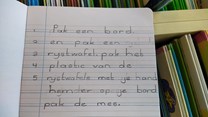 1 Pak een bord
2 en pak een
3 rijstwafel. pak het
4 plastic van de
5 rijstwafel met je hand
hem den op je bord
pak de mes.